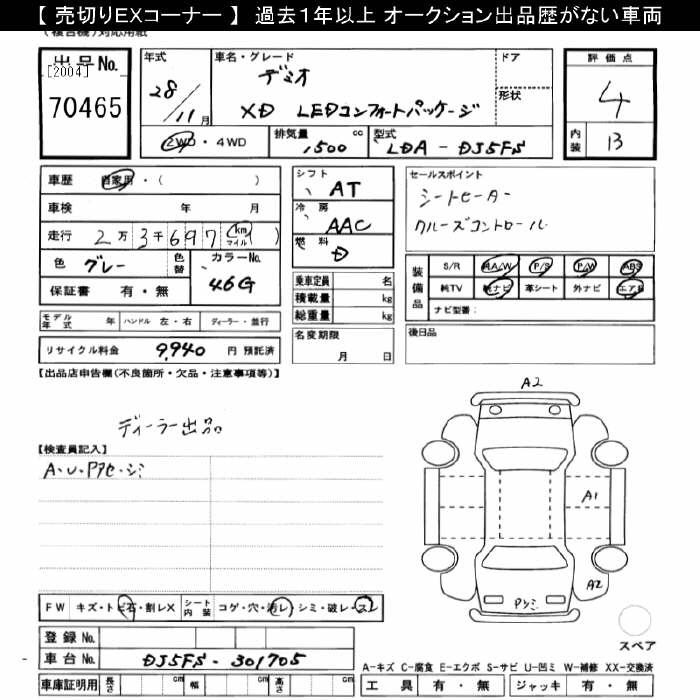 【 売切りEXコーナー 】 過去1年以上 オークション出品歴がない車両
(複合機)対応用紙
出品No.
[2004]
70465
年式
28/11月
車名・グレード
デミオ
XD LEDコンフォートパッケージ
ドア
形状
評価点
4
内装
B
2WD・4WD
排気量 cc
1500
型式
LDA - DJ5FS
車歴 自家用・( )
車検 年 月
走行 2万3千697 km マイル ( )
色 グレー
色替
カラーNo.
46G
保証書 有・無
シフト
AT
冷房
AAC
燃料
D
乗車定員 名
積載量 kg
総重量 kg
セールスポイント
シートヒーター
クルーズコントロール
装備品
S/R 純A/W P/S P/W ABS
純TV 純ナビ 革シート 外ナビ エアB
ナビ型番:
モデル年式 年 ハンドル 左・右 ディーラー・並行
リサイクル料金 9,940 円 預託済
名変期限
月 日
後日品
【出品店申告欄(不良箇所・欠品・注意事項等)】
ディーラー出品
【検査員記入】
A・U・Pアセ・シミ
A2
A1
A2
Pシミ
FW キズ・トビ石・割レX シート内装 コゲ・穴・汚レ・シミ・破レ・スレ
登録No.
車台No. DJ5FS - 301705
車庫証明用 長さ cm 幅 cm 高さ cm
スペア
A-キズ C-腐食 E-エクボ S-サビ U-凹ミ W-補修 XX-交換済
工具 有・無 ジャッキ 有・無